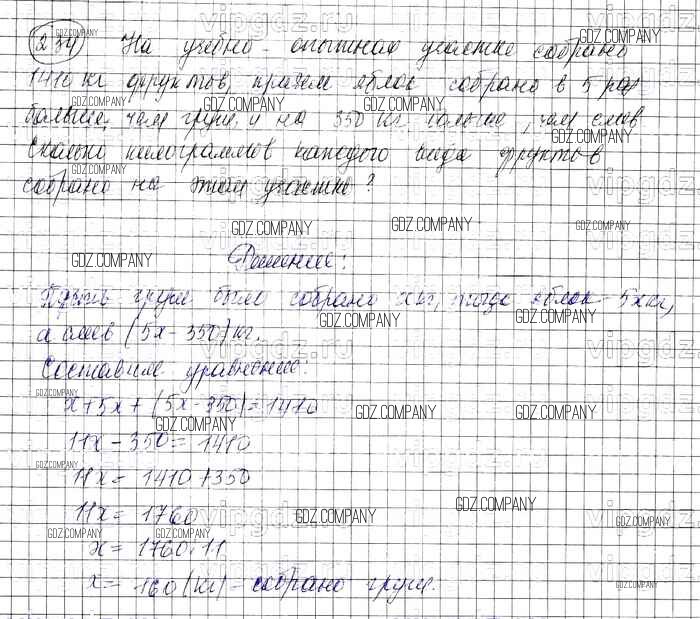 234) На учебно-опытном участке собрано
1410 кг фруктов, причем яблок собрано в 5 раз
больше, чем груш и на 350 кг больше, чем слив
Сколько килограммов каждого вида фруктов
собрано на этом участке?
Решение:
Пусть груш было собрано x кг, тогда яблок - 5x кг,
а слив (5x - 350) кг.
Составим уравнение:
x + 5x + (5x - 350) = 1410
11x - 350 = 1410
11x = 1410 + 350
11x = 1760
x = 1760 : 11
x = 160 (кг) - собрано груш.
GDZ.COMPANY
vipgdz.ru